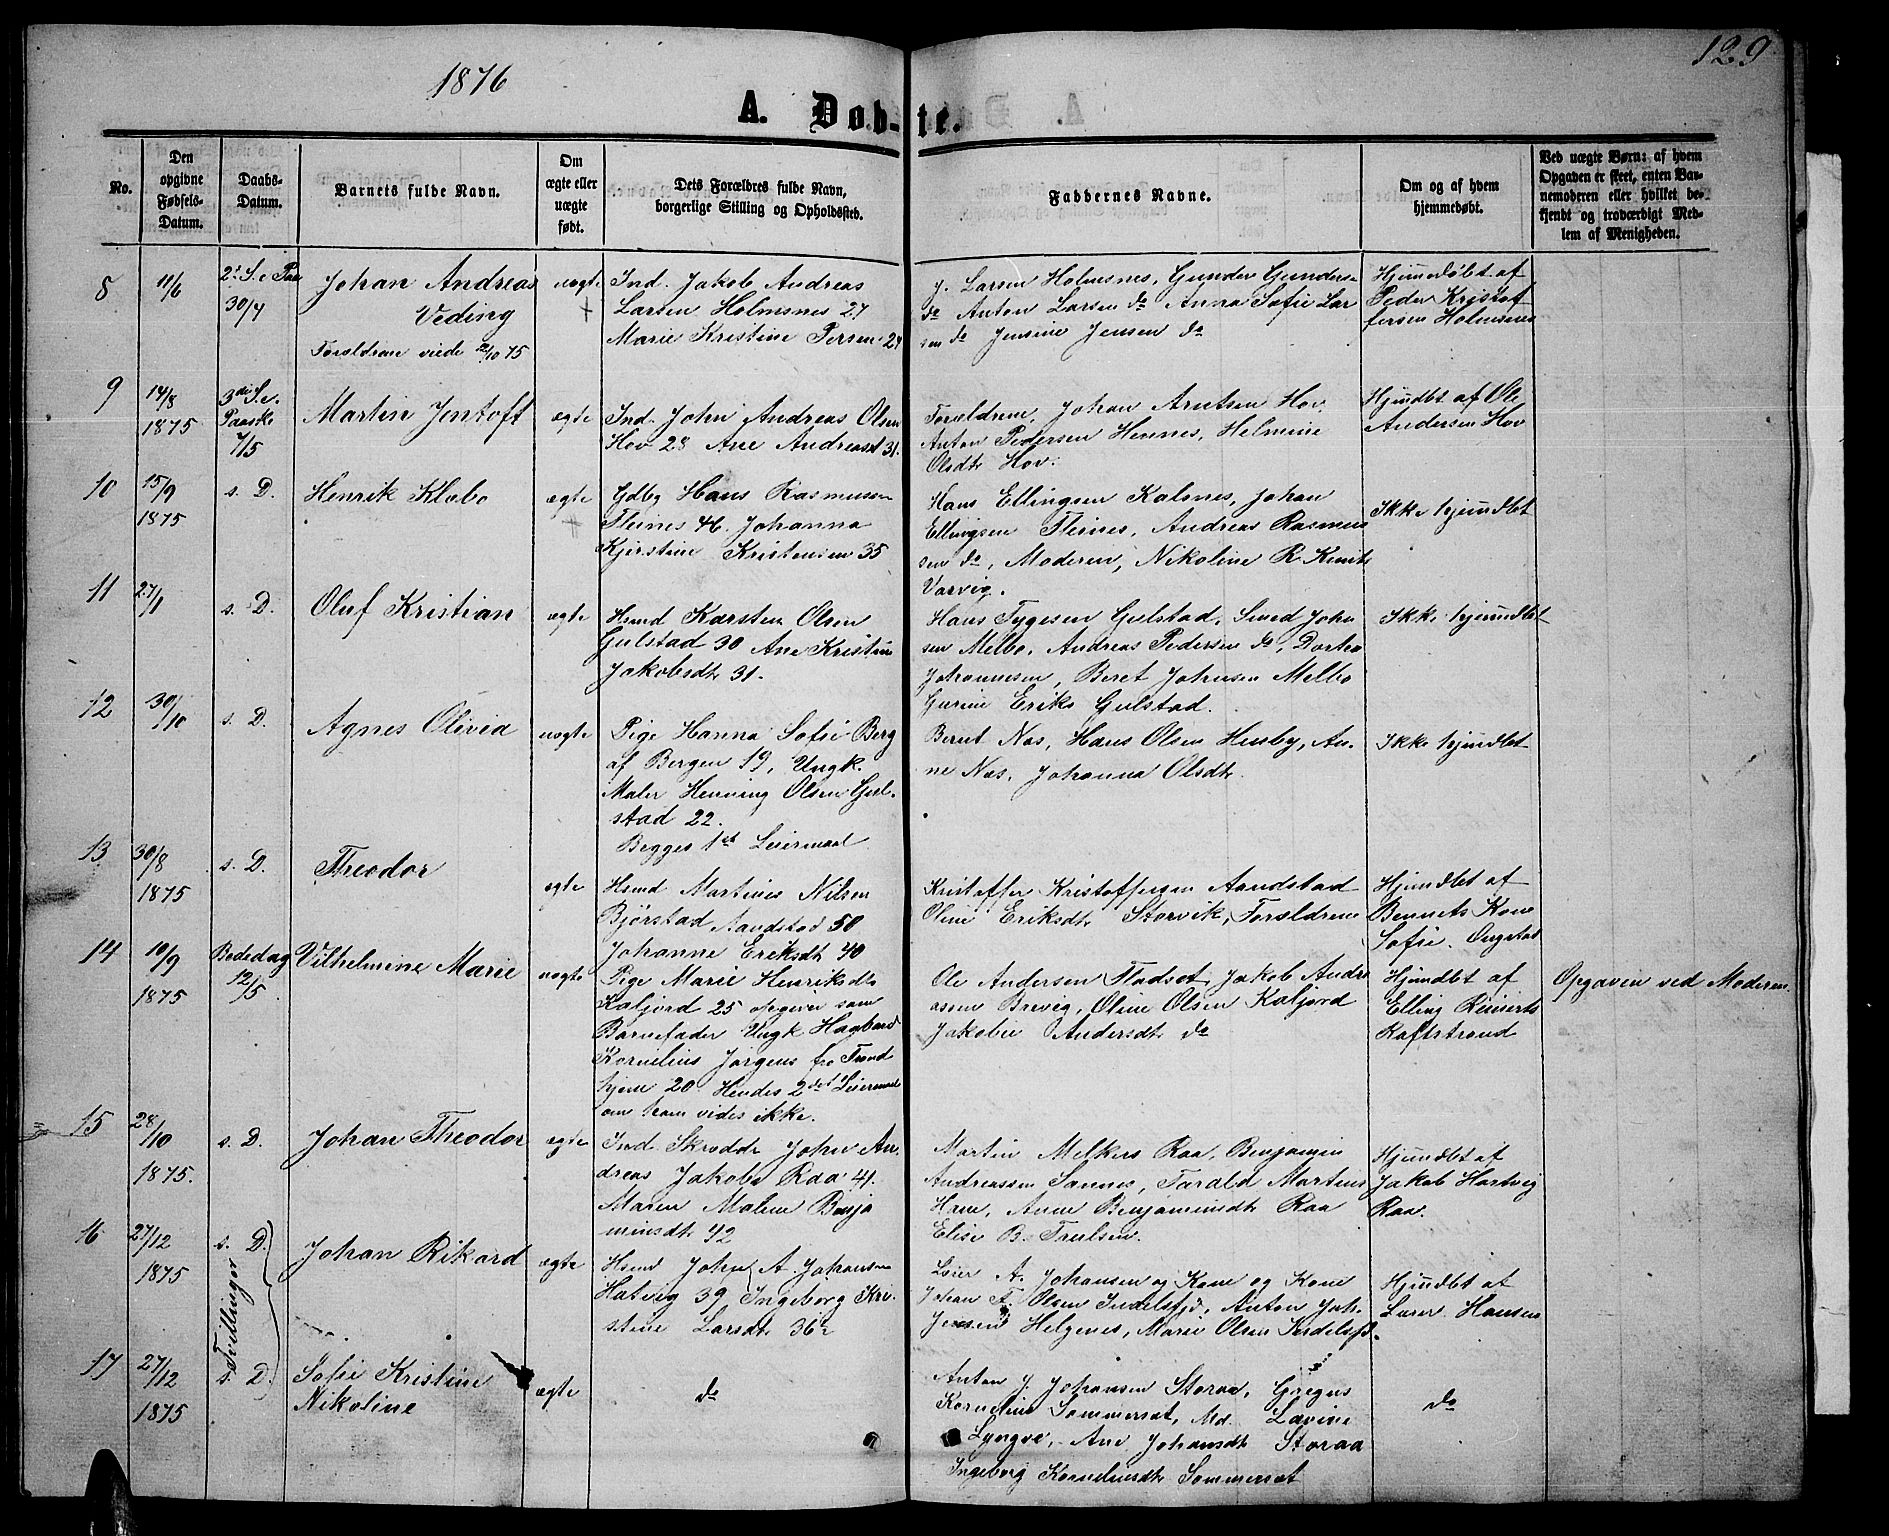 1876
129
A. Døb-te.
No.
Den
opgivne
Fødsels-
Datum.
Daabs-
Datum.
Barnets fulde Navn.
Om
ægte eller
uægte
født.
Dets Forældres fulde Navn,
borgerlige Stilling og Opholdssted.
Faddernes Navne.
Om og af hvem
hjemmedøbt.
Ved uægte Børn: af hvem
Opgaven er skeet, enten Bar-
nemoderen eller hvilket be-
kjendt og troværdigt Med-
lem af Menigheden.
8
11/6
2. S. e Paa
30/4
Johan Andreas
Veding
Forældrene viede /10 75
uægte
Ind. Jakob Andreas
Larsen Holmsnes 27
Marie Kristine Persen 24
J. Larsen Holmsnes, Gunder Gunders-
do Anton Larsen do Anna Sofie Lar
sen do Jensine Jensen do
Hjemedøbt af
Peder Kristof
fersen Holmsnes
9
14/8
1875
3die S. e.
Paaske
7/5
Martin Jentoft
ægte
Ind. John Andreas Olsen
Hov 28 Ane Andreasdt 31.
Forældrene, Johan Arntsen Hov,
Anton Pedersen Hennes, Helmine
Olsdtr Hov.
Hjmdbt af Ole
Andersen Hov
10
15/9
1875
s. D.
Henrik Klæbo
ægte
Gdbg Hans Rasmussen
Fleines 46. Johanna
Kjerstine Kristensen 35
Hans Ellingsen Kalsnes, Johan
Ellingsen Fleines, Andreas Rasmus
sen do, Moderen, Nikoline R. Knuts
Varvig.
Ikke hjmdbt
11
27/1
s. D.
Oluf Kristian
ægte
Hsmd Karsten Olsen
Gulstad 30 Ane Kristine
Jakobsdtr 31.
Hans Tygesen Gulstad, Smed John
sen Melbo, Andreas Pedersen do, Dorthea
Johannesen, Beret Johnsen Melbo
Gurine Eriks Gulstad.
Ikke hjemdbt
12
30/10
s. D.
Agnes Olivia
uægte
Pige Hanna Sofie Berg
af Bergen 19, Ungk.
Maler Henning Olsen Gul-
stad 22.
Begges 1st Leiermaal
Bernt Næs, Hans Olsen Husby, An-
ne Næs, Johanna Olsdtr
Ikke hjmdbt
13
30/8
1875
s. D.
Theodor
ægte
Hsmd Martines Nilsen
Bjørstad Sandstad 50
Johanne Eriksdt 40
Kristoffer Kristoffersen Aandstad
Oline Eriksdtr Storvik, Forældrene
Hjmdbt af
Bennets Kone
Sofie. Ongstad
14
10/9
1875
Bededag
12/5
Vilhelmine Marie
uægte
Pige Marie Henriksdtr
Kaljord 25 opgiver som
Barnefader Ungk Hagbard
Kornelius Jørgens fra Trond
hjem 20. Hendes 2det Leiermaal
om ham vides ikke.
Ole Andersen Fladset, Jakob Andre
assen Brevig, Oline Olsen Kaljord
Jakobie Andersdtr do
Hjmdbt af
Elling Reinerts
Raftstrand
Opgaven ved Moderen.
15
28/10
1875.
s. D.
Johan Theodor
ægte
Ind. Skrædder John An-
dreas Jakobs Raa 41.
Maren Malene Benja
minsdtr 42
Martin Melkers Raa, Benjamin
Andreassen Sannes, Tarald Martins
Hrm, Anne Benjaminsdtr Raa
Elise B. Trulsen.
Hjmdbt af
Jakob Hartvig
Raa.
16
27/12
1875
s. D.
Tvillinger
Johan Rikard
ægte
Hsmd John A. Johansen
Hatvig 39, Ingeborg Kri-
stine Larsdtr 36
Leier A. Johansen og Kone og Kone
Johan F. Olsen Indelsfjd, Anton Joh.
Jensen Helgenes, Marie Olsen Indelsfj.
Hjmdbt af
Lurer Hansen
17
27/12
1875
s. D.
Sofie Kristine
Nikoline
ægte
do
Anton J. Johansen Storaa, Gregus
Kornelius Sommerset, Md. Lavine
Lyngve, Ane Johansdtr Storaa
Ingeborg Korneliusdtr Sommerset
do